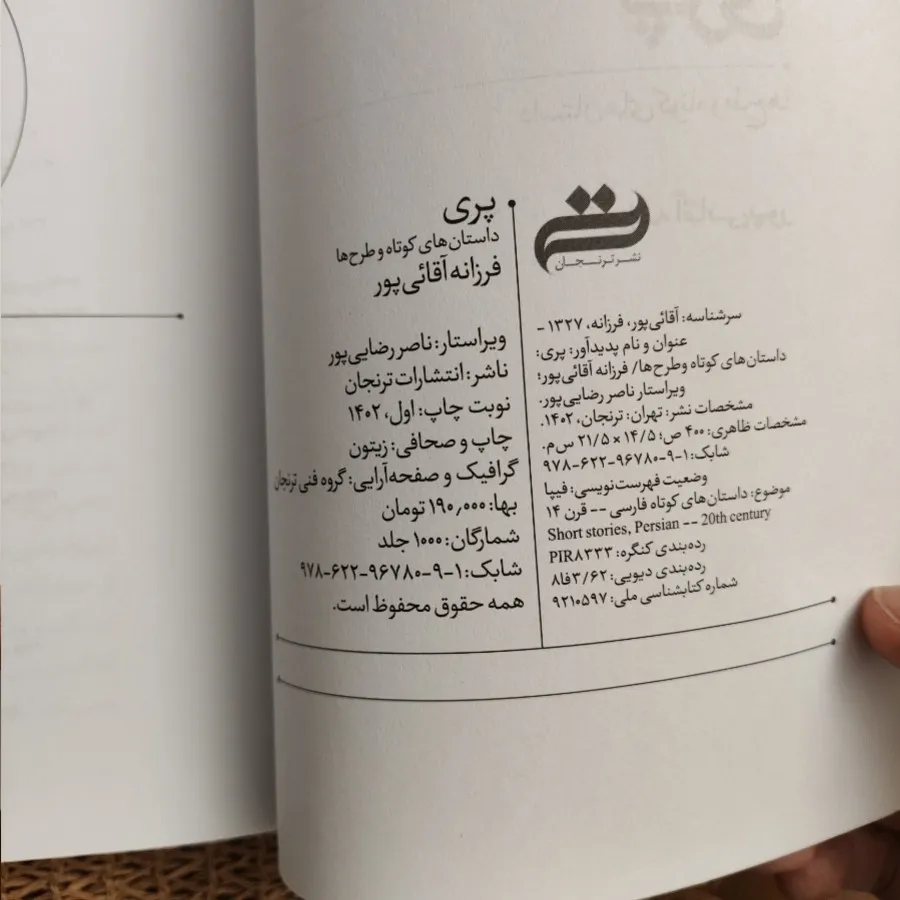 نشر ترنجان
سرشناسه: آقائی‌پور، فرزانه، ۱۳۲۷ -
عنوان و نام پدیدآور: پری:
داستان‌های کوتاه وطرح‌ها/ فرزانه آقائی‌پور؛
ویراستار ناصر رضایی‌پور.
مشخصات نشر: تهران: ترنجان، ۱۴۰۲.
مشخصات ظاهری: ۴۰۰ ص؛ ۱۴/۵ × ۲۱/۵ س‌م.
شابک: ۱-۹-۹۶۷۸۰-۶۲۲-۹۷۸
وضعیت فهرست‌نویسی: فیپا
موضوع: داستان‌های کوتاه فارسی -- قرن ۱۴
Short stories, Persian -- 20th century
رده‌بندی کنگره: PIR۸۳۳۳
رده‌بندی دیویی: ۳/۶۲فا۸
شماره کتابشناسی ملی: ۹۲۱۰۵۹۷
پری
داستان‌های کوتاه و طرح‌ها
فرزانه آقائی‌پور
ویراستار: ناصر رضایی‌پور
ناشر: انتشارات ترنجان
نوبت چاپ: اول، ۱۴۰۲
چاپ و صحافی: زیتون
گرافیک و صفحه‌آرایی: گروه فنی ترنجان
بها: ۱۹۰٫۰۰۰ تومان
شمارگان: ۱۰۰۰ جلد
شابک: ۱-۹-۹۶۷۸۰-۶۲۲-۹۷۸
همه حقوق محفوظ است.